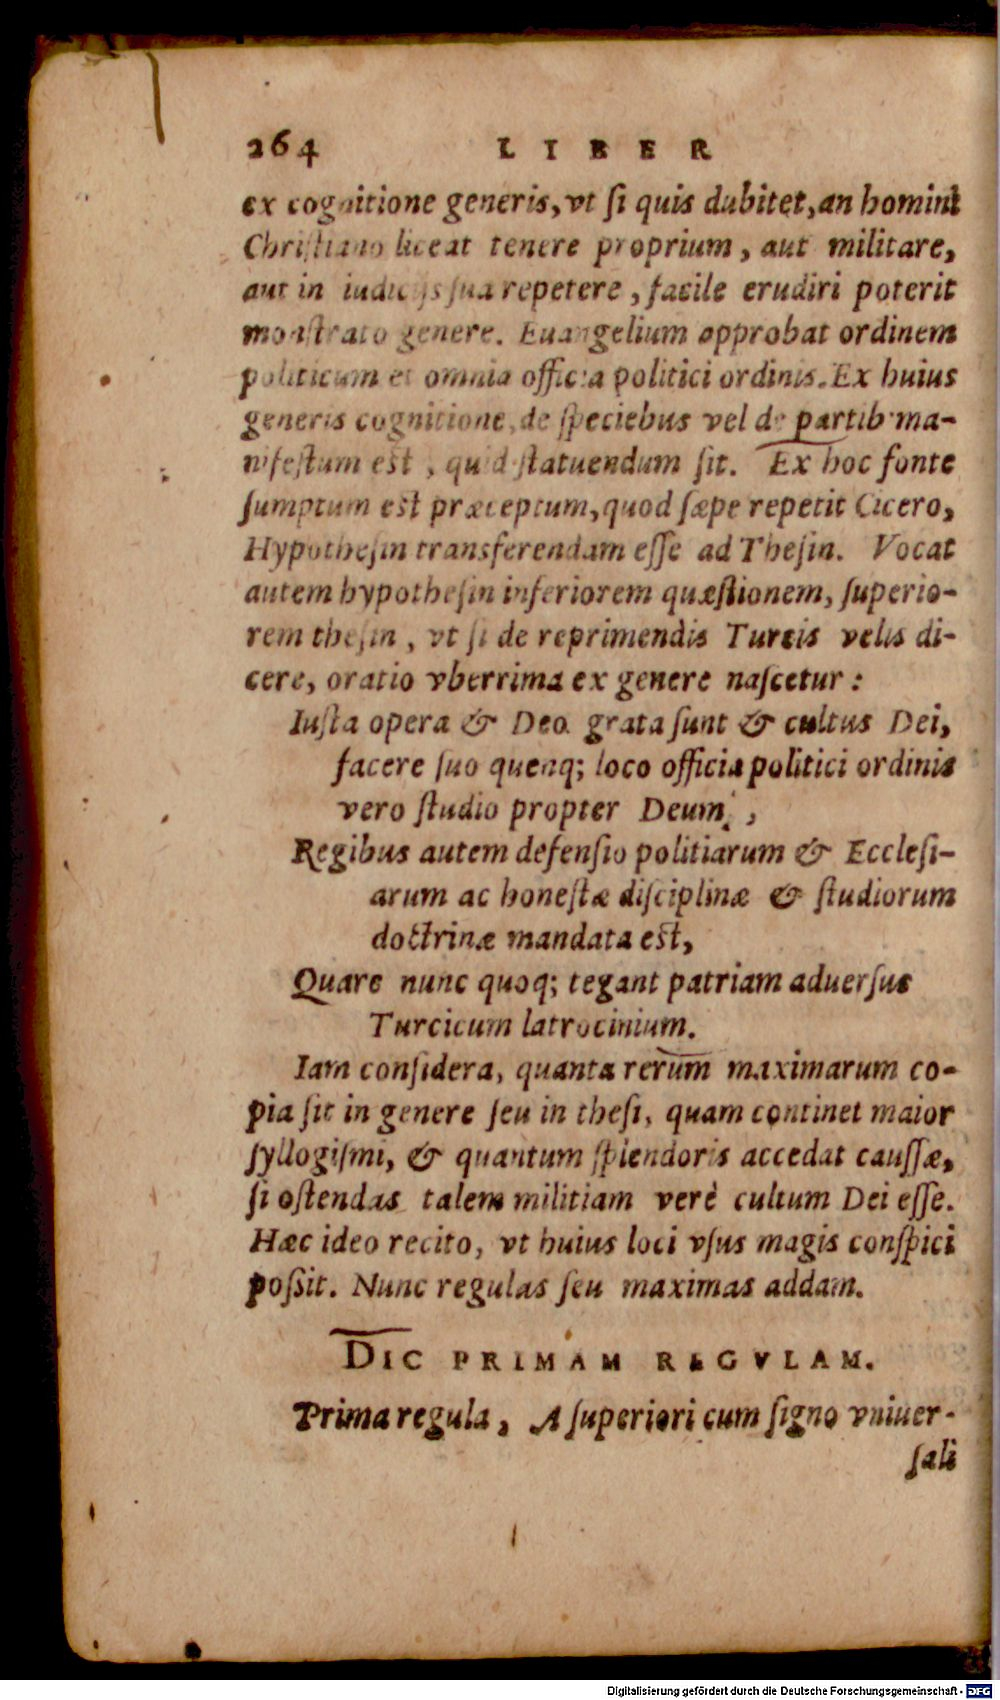 264 LIBER
ex cognitione generis, vt ſi quis dubitet, an homini
Chriſtiano liceat tenere proprium, aut militare,
aut in iudicijs ſua repetere, facile erudiri poterit
monſtrato genere. Euangelium approbat ordinem
politicum et omnia officia politici ordinis. Ex huius
generis cognitione, de ſpeciebus vel de partib. ma-
nifeſtum eſt, quid ſtatuendum ſit. Ex hoc fonte
ſumptum eſt præceptum, quod ſæpe repetit Cicero,
Hypotheſin transferendam eſſe ad Theſin. Vocat
autem hypotheſin inferiorem quæſtionem, ſuperio-
rem theſin, vt ſi de reprimendis Turcis velis di-
cere, oratio vberrima ex genere naſcetur:
Iuſta opera & Deo grata ſunt & cultus Dei,
facere ſuo quenq; loco officia politici ordinis
vero ſtudio propter Deum,
Regibus autem defenſio politiarum & Eccleſi-
arum ac honeſtæ diſciplinæ & ſtudiorum
doctrinæ mandata eſt,
Quare nunc quoq; tegant patriam aduerſus
Turcicum latrocinium.
Iam conſidera, quanta rerum maximarum co-
pia ſit in genere ſeu in theſi, quam continet maior
ſyllogiſmi, & quantum ſplendoris accedat cauſſæ,
ſi oſtendas talem militiam verè cultum Dei eſſe.
Hæc ideo recito, vt huius loci vſus magis conſpici
poſsit. Nunc regulas ſeu maximas addam.
DIC PRIMAM REGVLAM.
Prima regula, A ſuperiori cum ſigno vniuer-
ſali
Digitalisierung gefördert durch die Deutsche Forschungsgemeinschaft - DFG